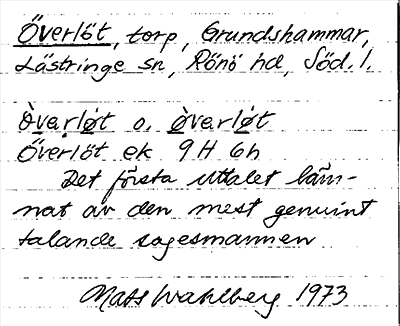 Överlöt, torp, Grundshammar,
Lästringe sn, Rönö hd, Söd. l.
Ò̤ve̤rlǿ̤t o. ø̀ve̤rlø̤̀t
Överlöt ek 9H 6h
Det första uttalet läm-
nat av den mest genuint
talande sagesmannen
Mats Wahlberg 1973